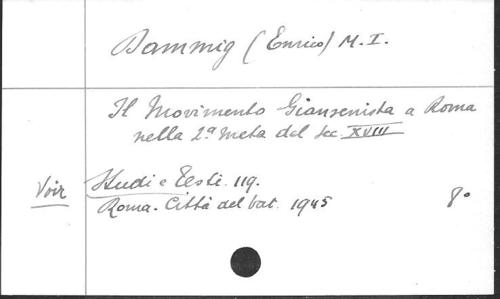 Dammig (Enrico) M. I.
Il Movimento Giansenista a Roma
nella 2ª meta del sec. XVIII
Voir Studi e Testi. 119.
Roma. Città del Vat. 1945 8º